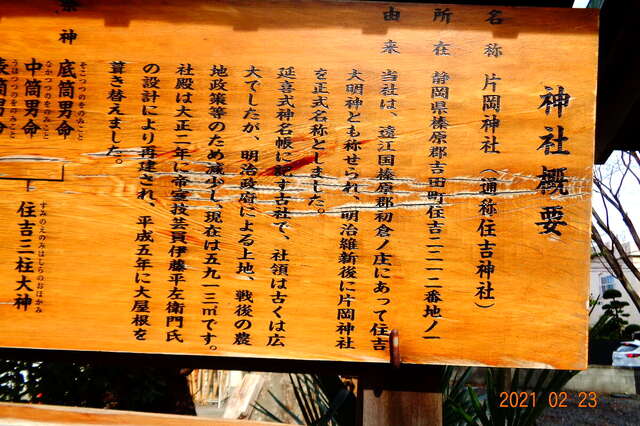 神社概要
名称 片岡神社(通称住吉神社)
所在 静岡県榛原郡吉田町住吉二二一二番地ノ一
由来 当社は、遠江国榛原郡初倉ノ庄にあって住吉
大明神とも称せられ、明治維新後に片岡神社
を正式名称としました。
延喜式神名帳に記す古社で、社領は古くは広
大でしたが、明治政府による上地、戦後の農
地政策等のため減少し、現在は五九一三㎡です。
社殿は大正二年に帝室技芸員伊藤平左衛門氏
の設計により再建され、平成五年に大屋根を
葺き替えました。
祭神
底筒男命
そこつつのをのみこと
中筒男命
なかつつのをのみこと
表筒男命
うはつつのをのみこと
住吉三柱大神
すみのえのみはしらのおほかみ
2021 02 23